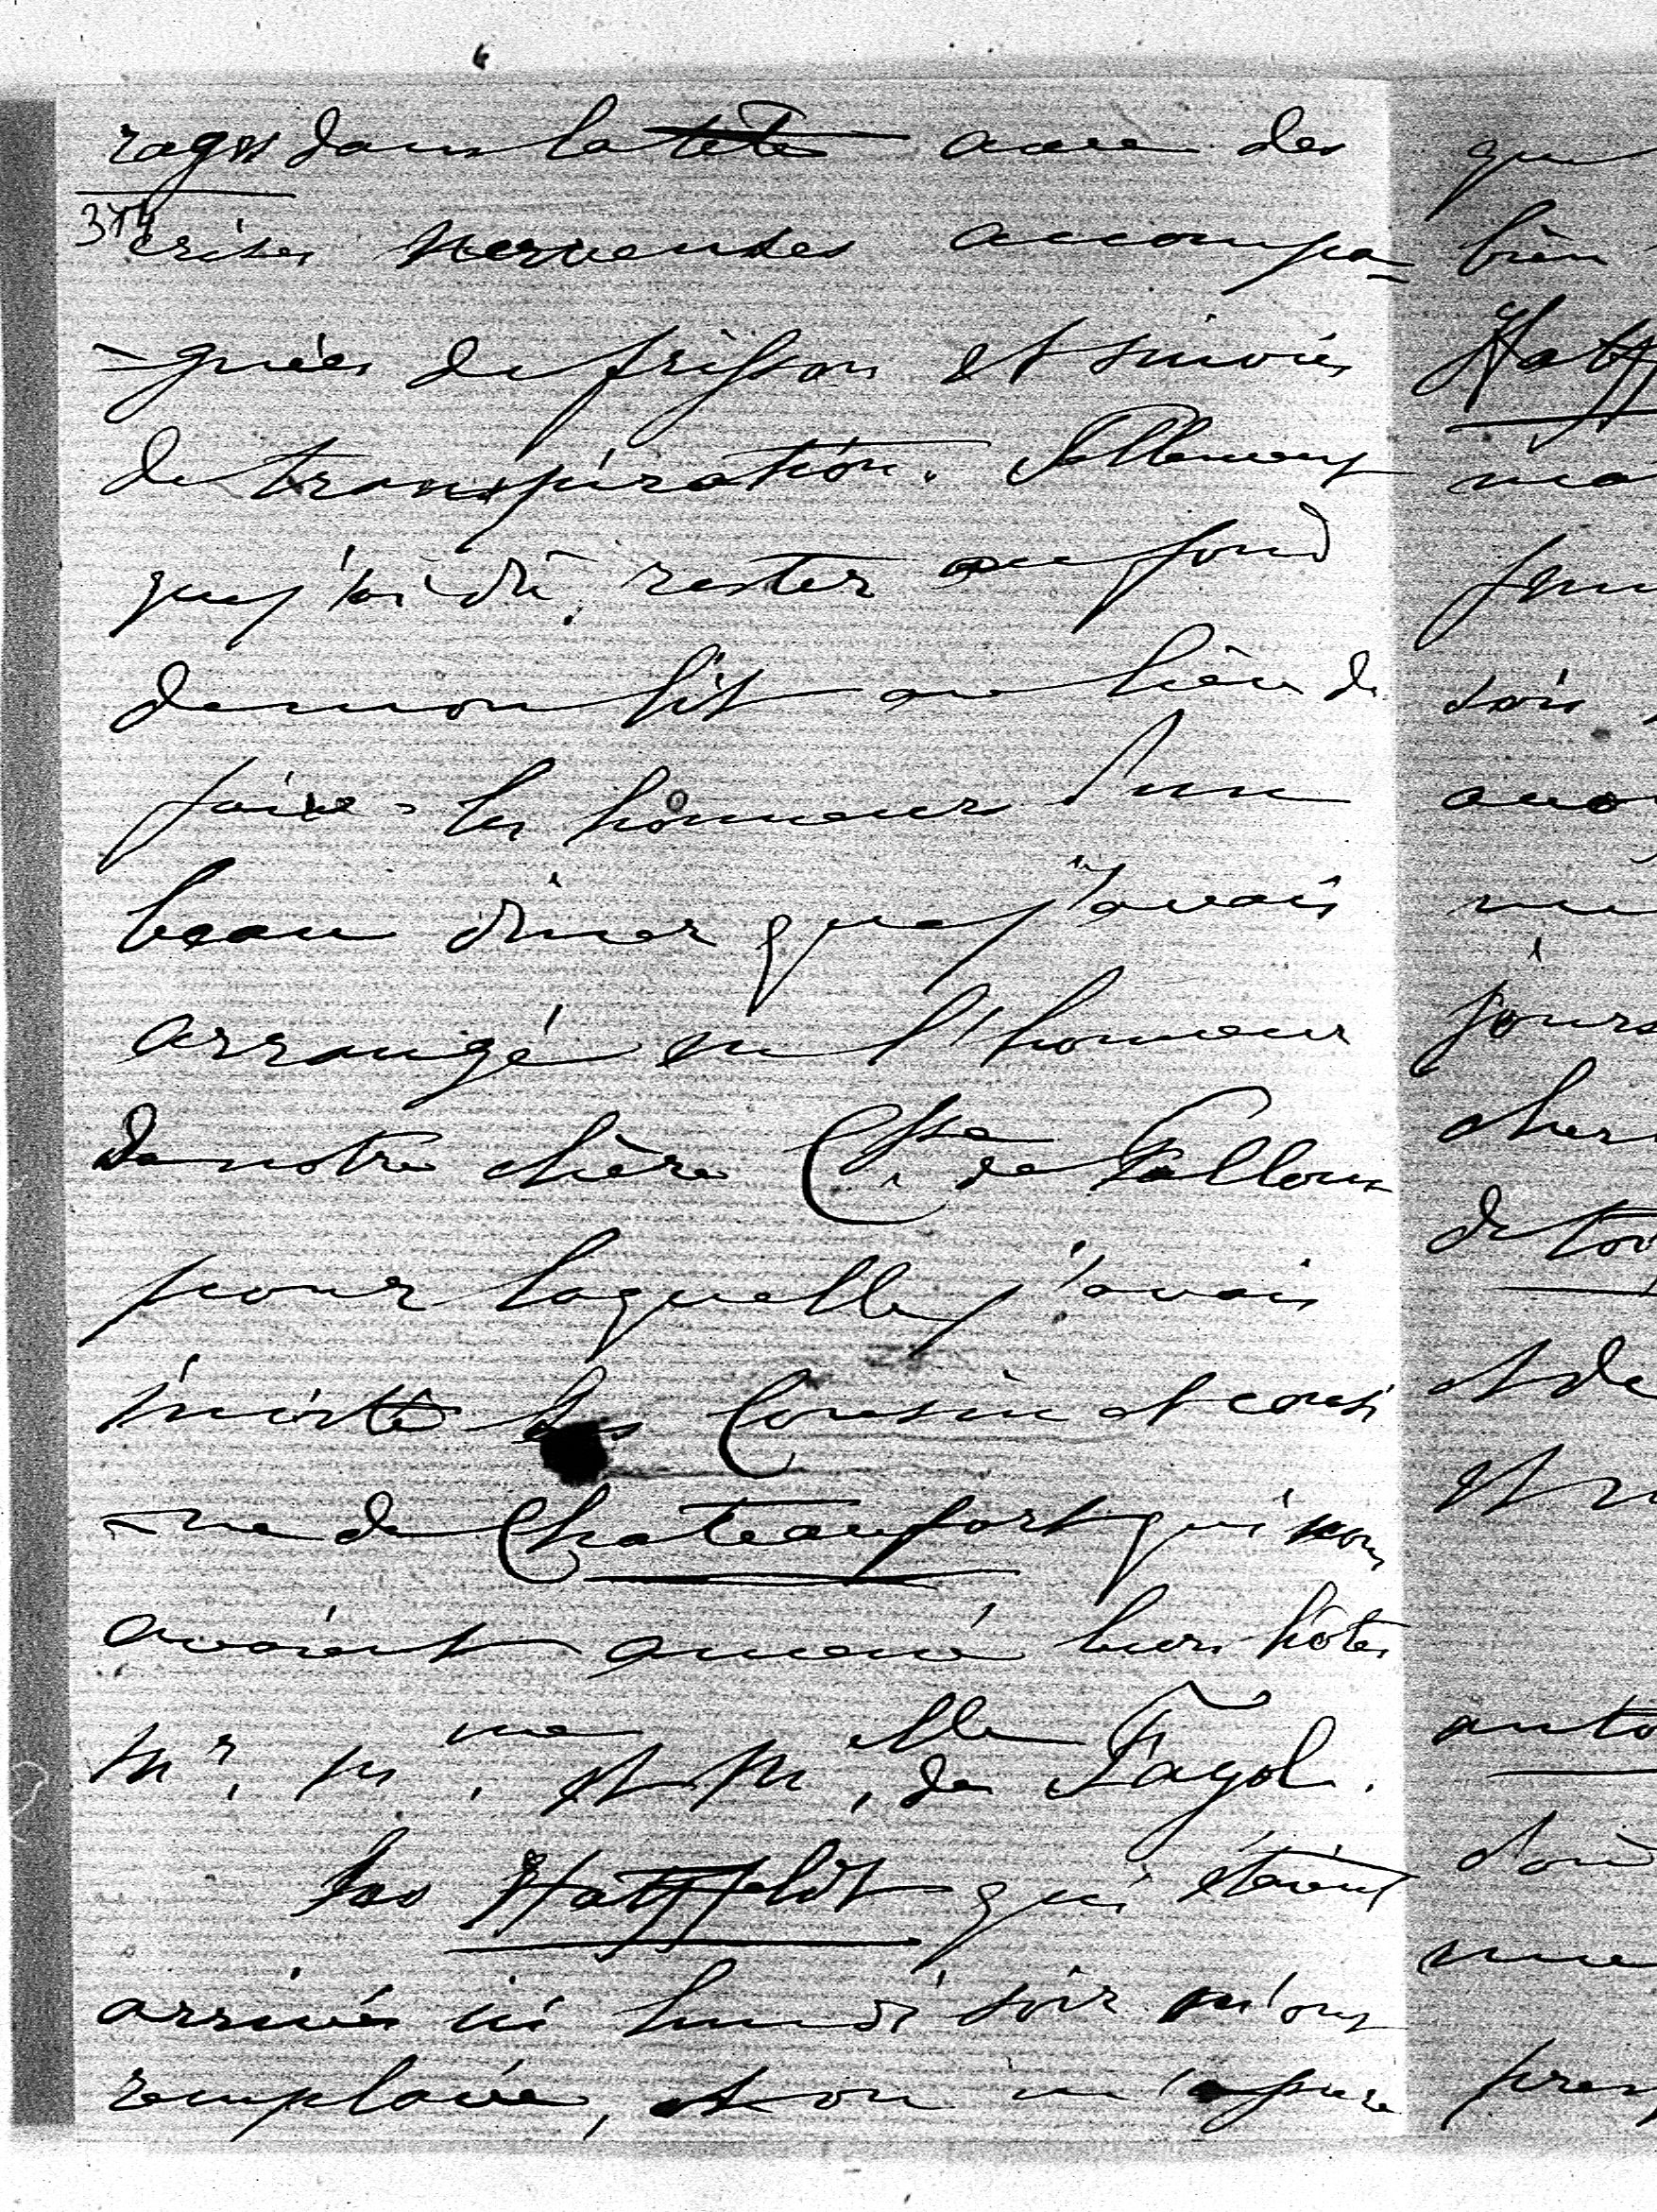 rages dans la tête avec des
374
crises nerveuses accompa=
=gnées de frisson et suivies
de transpiration. Tellement
que j'ai dû rester au fond
de mon lit au lieu de
faire les honneurs d'un
beau diner que j'avais
arrangé en l'honneur
de notre chère Ctsse de Falloux
pour laquelle j'avais
invité les Cousin et cousi
-ne de Chateaufort qui nous
avaient amené leurs hôtes
Mr, Mme, et Melle, de Fayol.
Les Hatzfeldt qui étaient
arrivés ici lundi soir m'ont
remplacée, et on m'a pure
que
bien
Hatzf
soir
jours
cher
de tou
et de
d'où